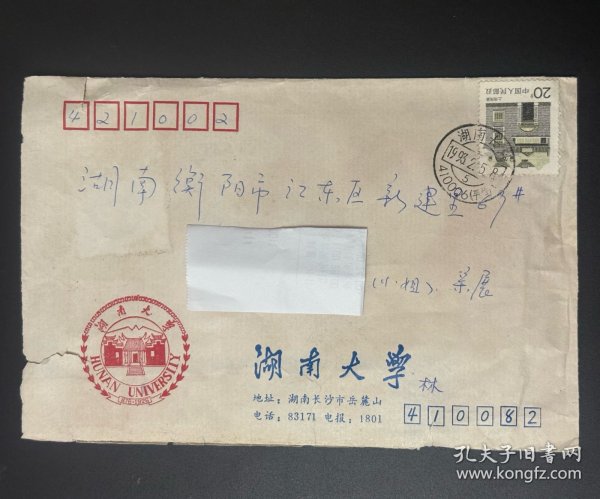 421002
20分
中国人民邮政
湖南
1993.2.5.
410006
湖南衡阳市江东区新建里69#
(小姐)亲展
湖南大学
HUNAN UNIVERSITY
湖南大学
林
地址：湖南长沙市岳麓山
电话：83171 电报：1801
410082
孔夫子旧书网
www.kongfz.com